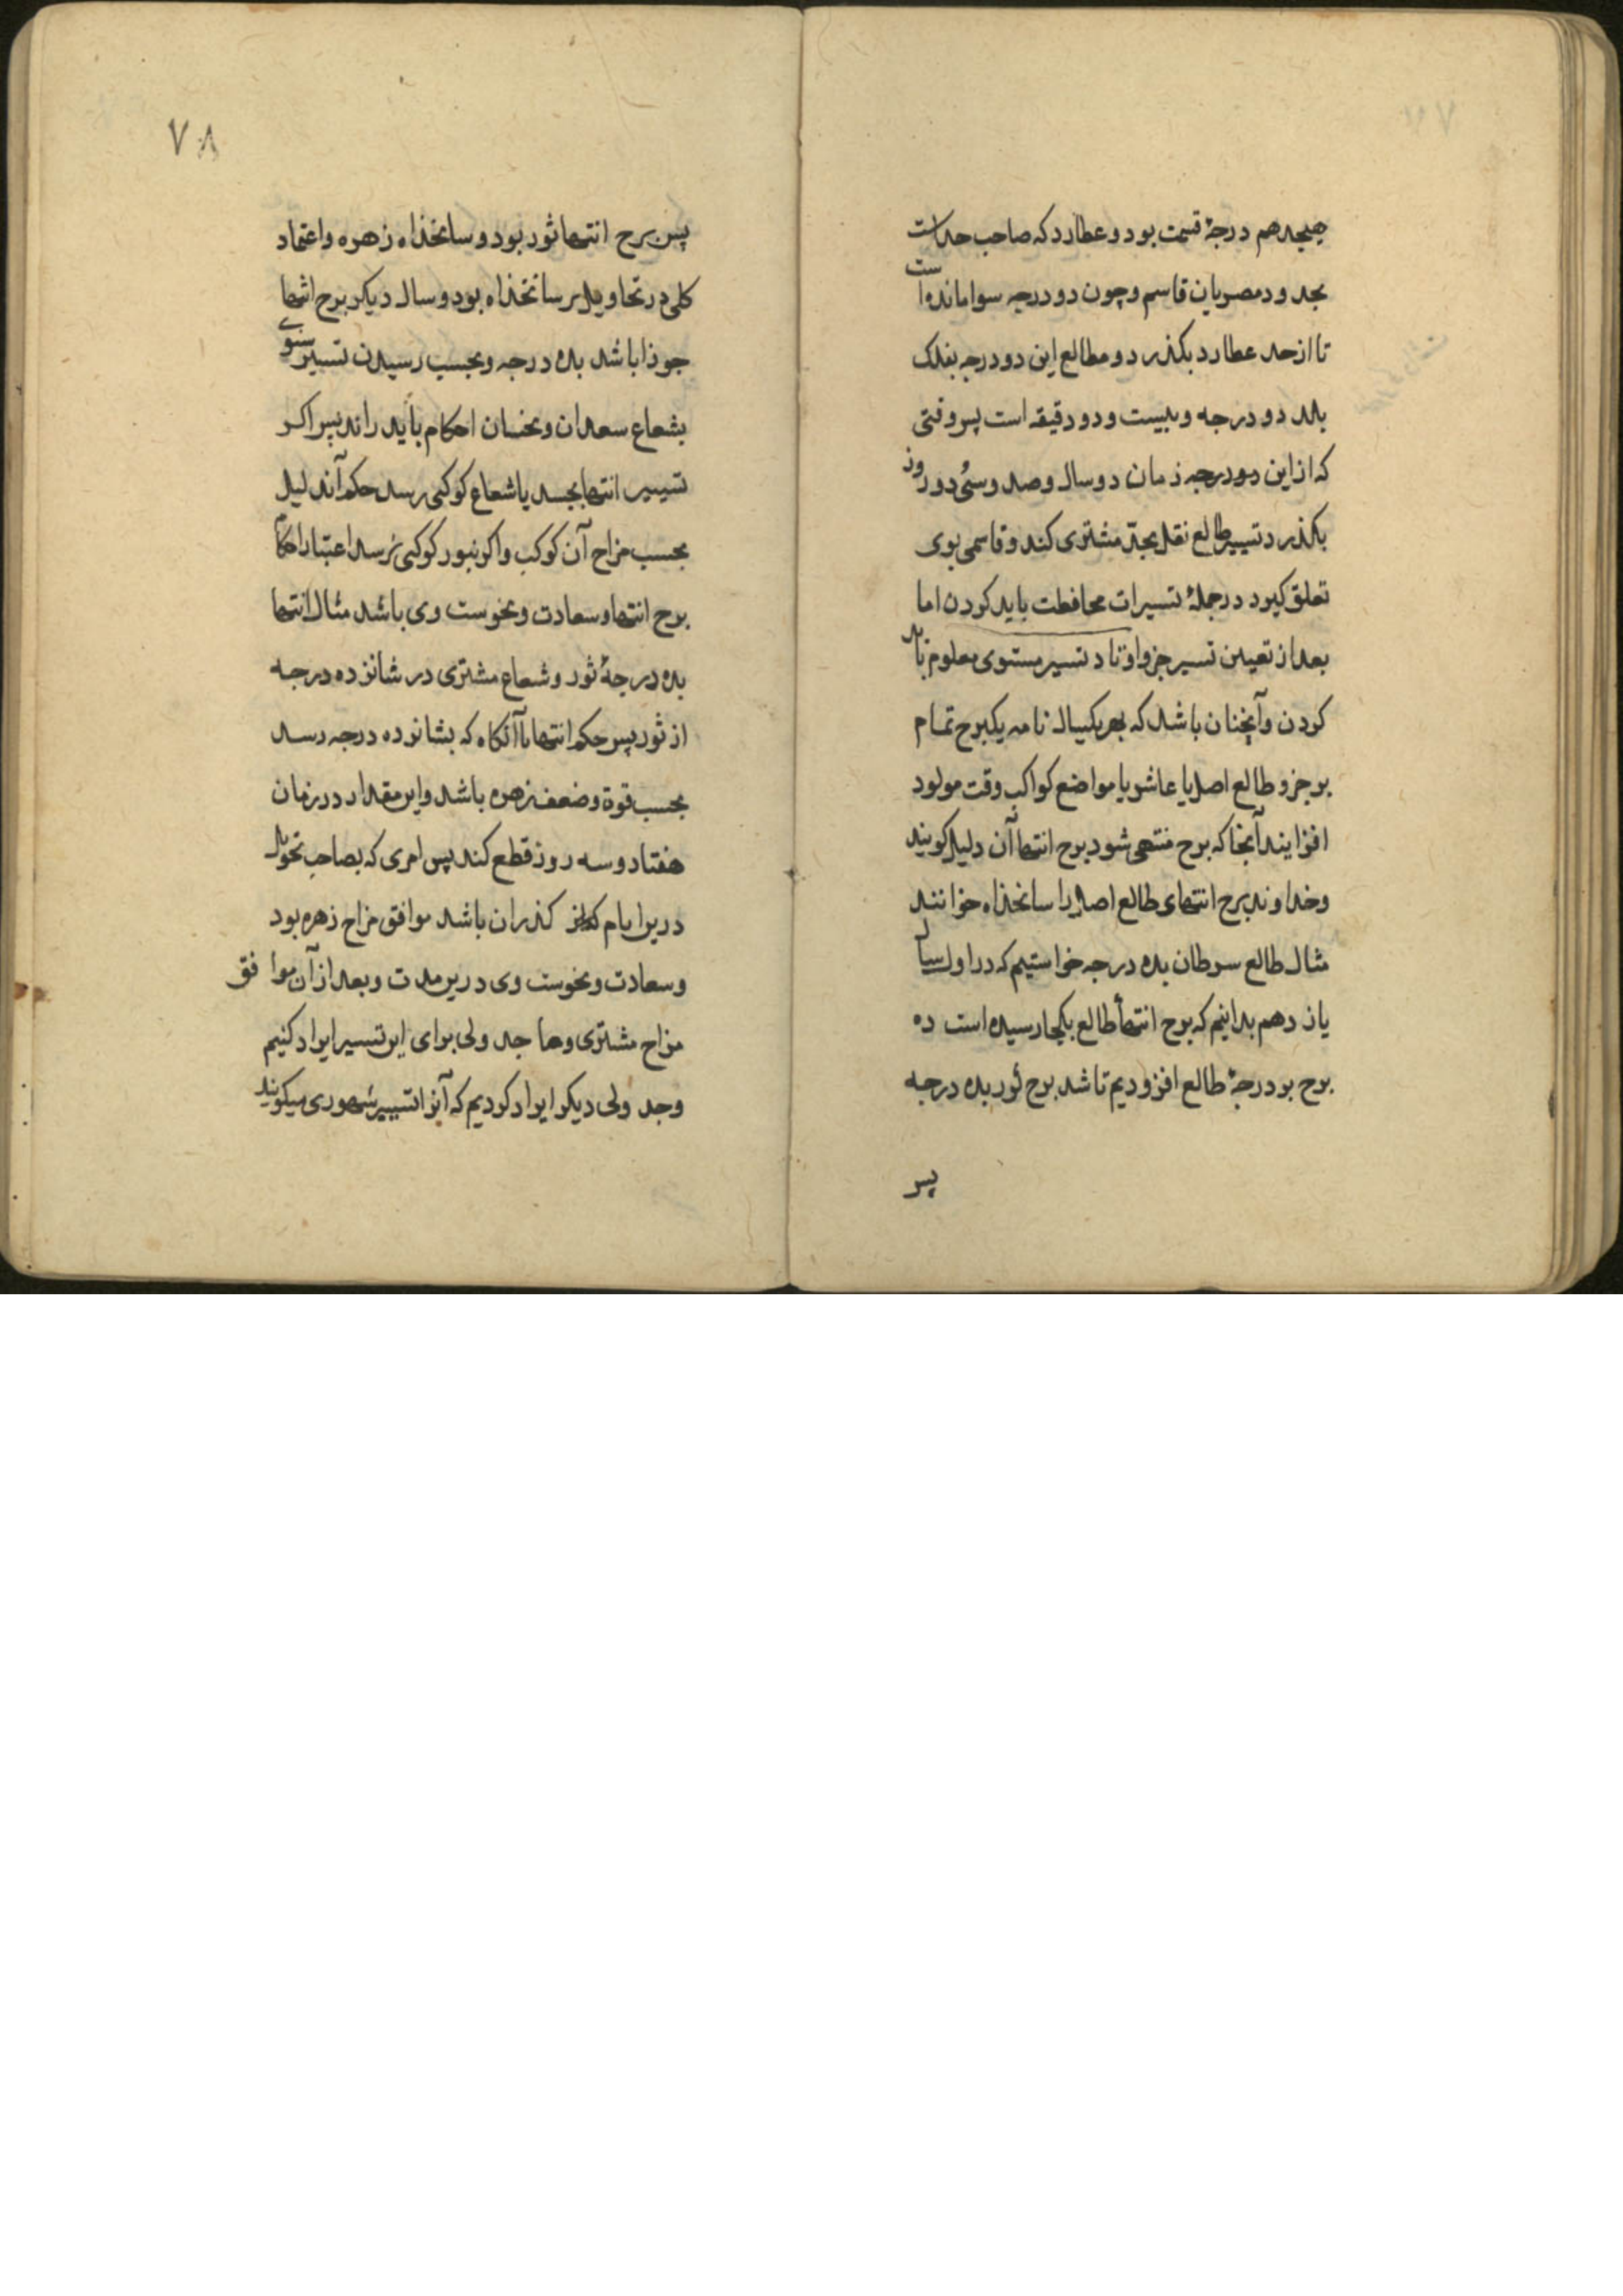 هیجدهم درجهٔ قسمت بود و عطارد که صاحب حد است
بحدود مصریان قاسم و چون دو درجه سوا مانده است
تا از حد عطارد بکذرد و مطالع این دو درجه بفلک
بلد دو درجه و بیست و دو دقیقه است پس وقتی
که از این دو درجه زمان دو سال و صد و سی و دو روز
بکذرد تسییر طالع نقل بحدّ مشتری کند و قاسمی بوی
تعلق کیرد در جملهٔ تسیرات محافظت باید کردن اما
بعد از تعیین تسیر جزو اوتاد تسیر مستوی معلوم باید
کردن و آنچنان باشد که بهر یکسال تامه یکبرج تمام
بر جزو طالع اصل یا عاشر یا مواضع کواکب وقت مولود
افزایند آنجا که برج منتهی شود برج انتها آن دلیل کویند
و خداوند برج انتهای طالع اصل را سالخذاه خوانند
مثال طالع سرطان بده درجه خواستیم که در اول سال
یازدهم بدانیم که برج انتهأ طالع بکجا رسیده است ده
برج بر درجهٔ طالع افزودیم تا شد برج ثور بده درجه
پس
۷۸
پس برج انتها ثور بود و سالخذاه زهره و اعتماد
کلی در تحاویل بر سالخذاه بود و سال دیکر برج انتها
جوزا باشد بده درجه و بحسب رسیدن تسییر سنوی
بشعاع سعدان و نحسان احکام باید راند پس اکر
تسییر انتها بجسد یا شعاع کوکبی رسد حکم آن دلیل
بحسب مزاج آن کوکب و اکر بنور کوکبی نرسد اعتبار احکام
برج انتها و سعادت و نحوست وی باشد مثال انتها
بده درجهٔ ثور و شعاع مشتری در شانزده درجه
از ثور پس حکم انتها تا آنکاه که بشانزده درجه رسد
بحسب قوة و ضعف زهره باشد و این مقدار در زمان
هفتاد و سه روز قطع کند پس امری که بصاحب تحویل
درین ایام کذران باشد موافق مزاج زهره بود
و سعادت و نحوست وی درین مدت و بعد از آن موافق
مزاج مشتری و ما جدولی برای این تسییر ایراد کنیم
و جدولی دیکر ایراد کردیم که آنرا تسییر شهوری میکویند